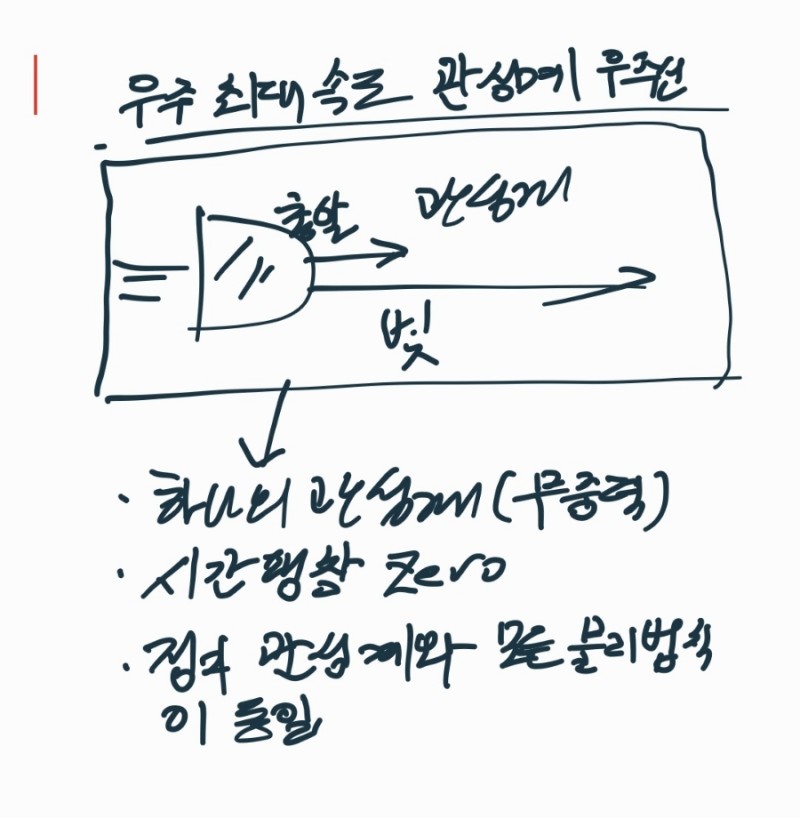 우주 최대 속도 관성계 우주선
출발 관성계
빛
· 하나의 관성계 (무중력)
· 시간팽창 Zero
· 정지 관성계와 모든 물리법칙
이 동일